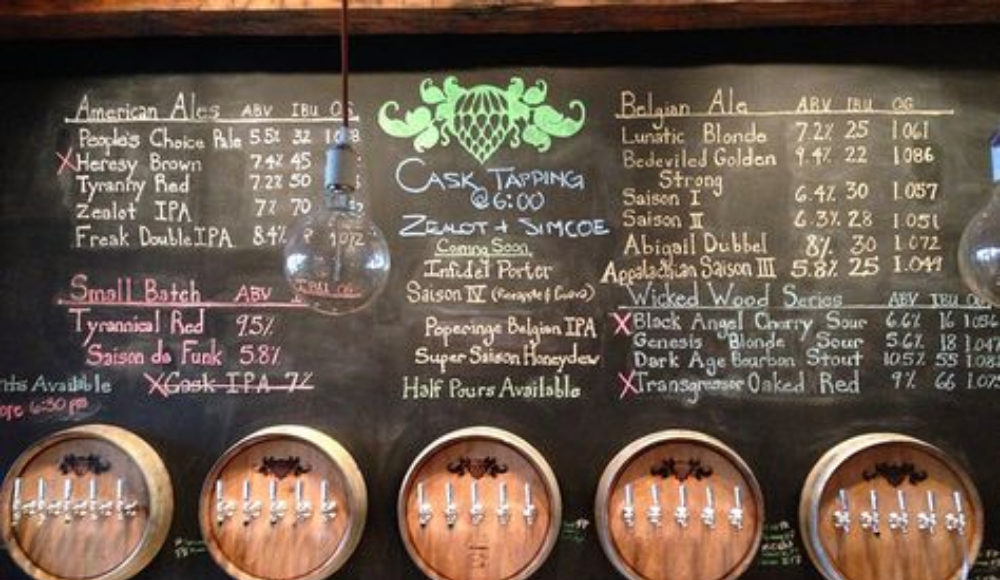 American Ales ABV IBU OG
People's Choice Pale 5.5% 32
X Heresy Brown 7.4% 45
Tyranny Red 7.2% 50
Zealot IPA 7% 70
Freak Double IPA 8.4% 1072
Small Batch ABV IBU OG
Tyrannical Red 9.5%
Saison de Funk 5.8%
Available
X Cask IPA 7%
6:30 pm
CASK TAPPING
@ 6:00
ZEALOT + SIMCOE
Coming Soon
Infidel Porter
Saison IV (Pineapple & Guava)
Poperinge Belgian IPA
Super Saison Honeydew
Half Pours Available
Belgian Ale ABV IBU OG
Lunatic Blonde 7.2% 25 1.061
Bedeviled Golden 9.4% 22 1.086
Strong
Saison I 6.4% 30 1.057
Saison II 6.3% 28 1.051
Abigail Dubbel 8% 30 1.072
Appalachian Saison III 5.8% 25 1.049
Wicked Wood Series ABV IBU OG
X Black Angel Cherry Sour 6.6% 16 1.056
Genesis Blonde Sour 5.6% 18 1.047
Dark Age Bourbon Stout 10.5% 55
X Transgressor Oaked Red 9% 66